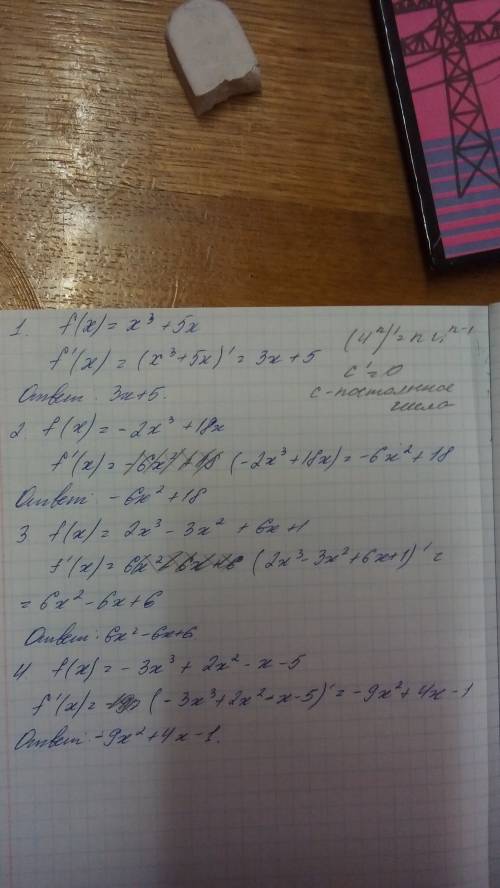 1. f(x) = x³ + 5x
f'(x) = (x³ + 5x)' = 3x + 5
Ответ: 3x+5.
(uⁿ)' = n uⁿ⁻¹
c' = 0
c - постоянное
числа
2 f(x) = - 2x³ + 18x
f'(x) = (-2x³ + 18x) = -6x² + 18
Ответ: -6x² + 18
3 f(x) = 2x³ - 3x² + 6x + 1
f'(x) = (2x³ - 3x² + 6x + 1)' =
= 6x² - 6x + 6
Ответ: 6x² - 6x + 6
4 f(x) = - 3x³ + 2x² - x - 5
f'(x) = (- 3x³ + 2x² - x - 5)' = - 9x² + 4x - 1
Ответ: -9x² + 4x - 1.